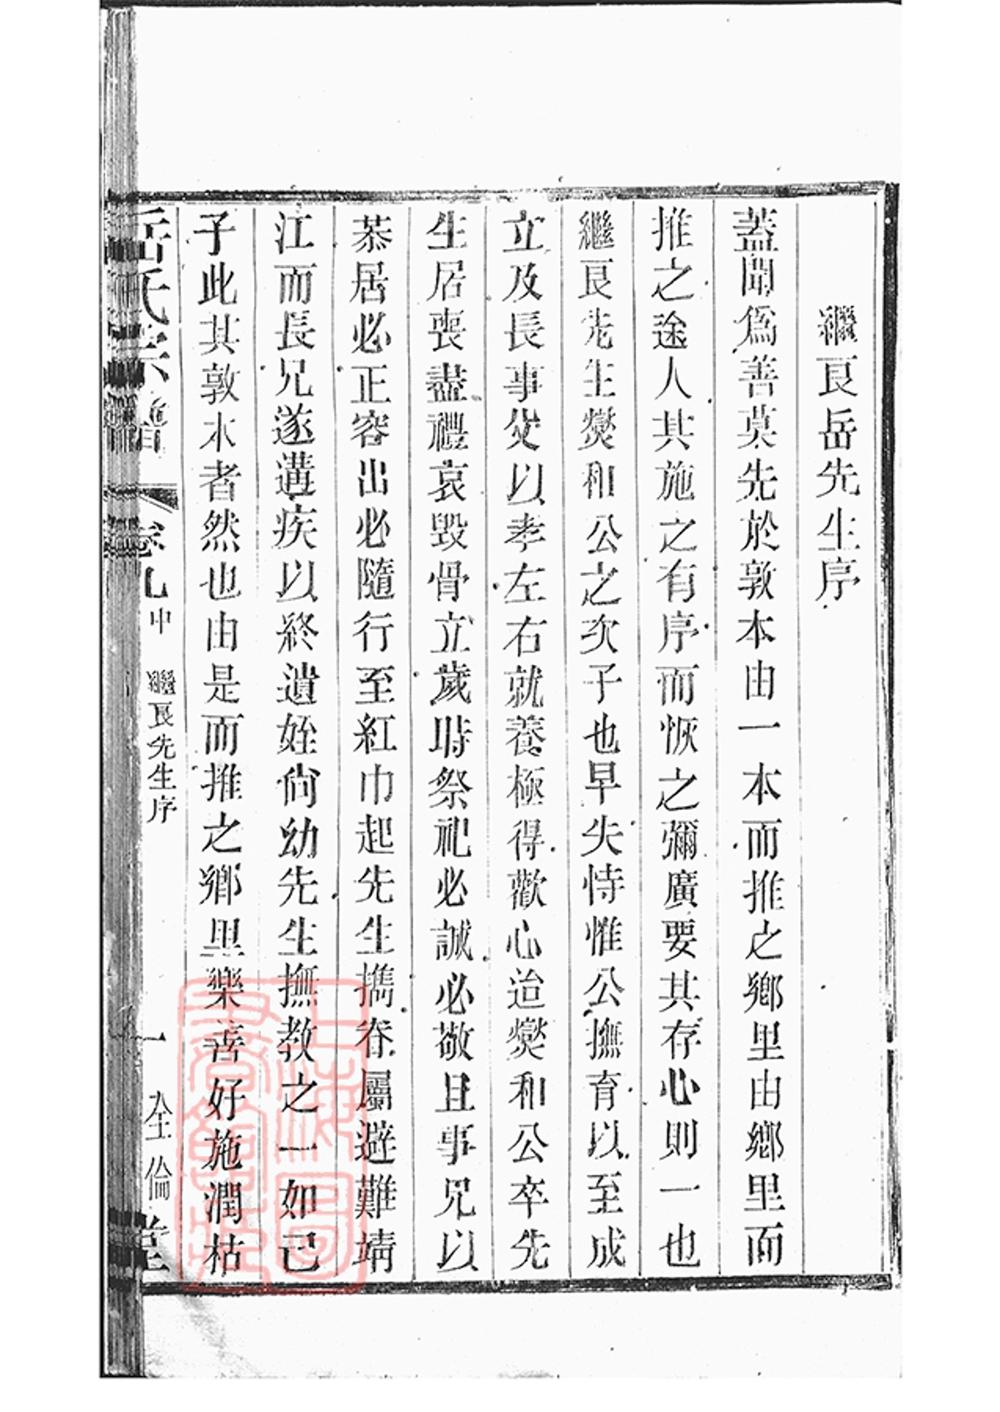 繼艮岳先生序
蓋聞爲善莫先於敦本由一本而推之鄉里由鄉里而
推之途人其施之有序而恢之彌廣要其存心則一也
繼艮先生燮和公之次子也早失恃惟公撫育以至成
立及長事父以孝左右就養極得歡心迨燮和公卒先
生居喪盡禮哀毀骨立歲時祭祀必誠必敬且事兄以
恭居必正容出必隨行至紅巾起先生攜眷屬避難靖
江而長兄遂遘疾以終遺姪尙幼先生撫教之一如己
子此其敦本者然也由是而推之鄉里樂善好施潤枯
岳氏宗譜
卷九
中
繼艮先生序
一
仝倫堂
上海圖書館藏